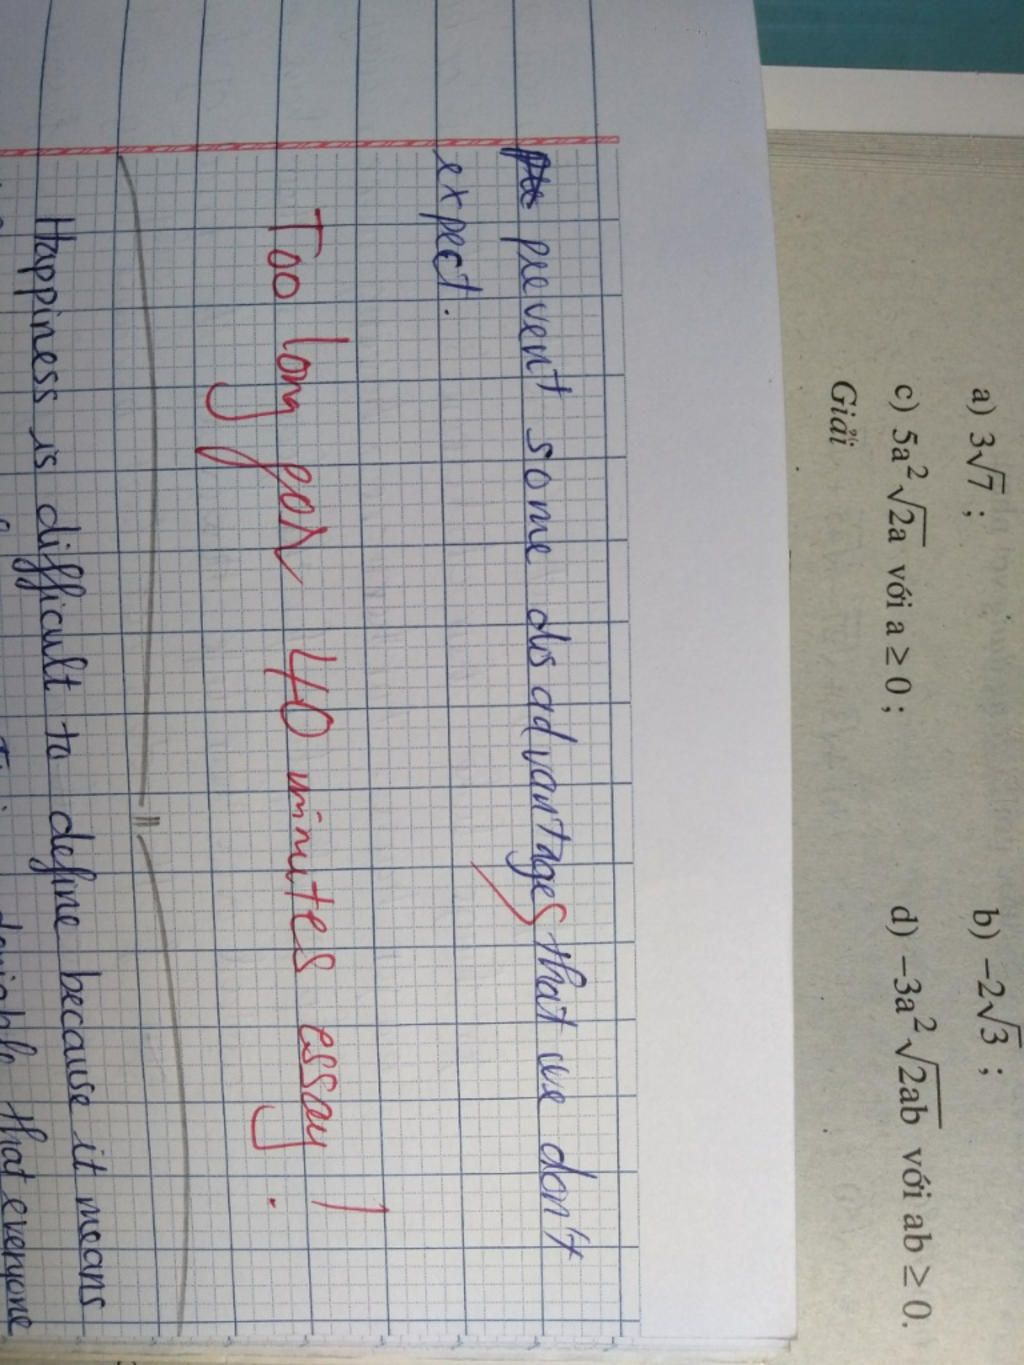 a) 3√7 ;
b) −2√3 ;
c) 5a²√2a với a ≥ 0 ;
d) −3a²√2ab với ab ≥ 0.
Giải
prevent some disadvantages that we don't
expect.
Too long for 40 minutes essay !
Happiness is difficult to define because it means
that everyone